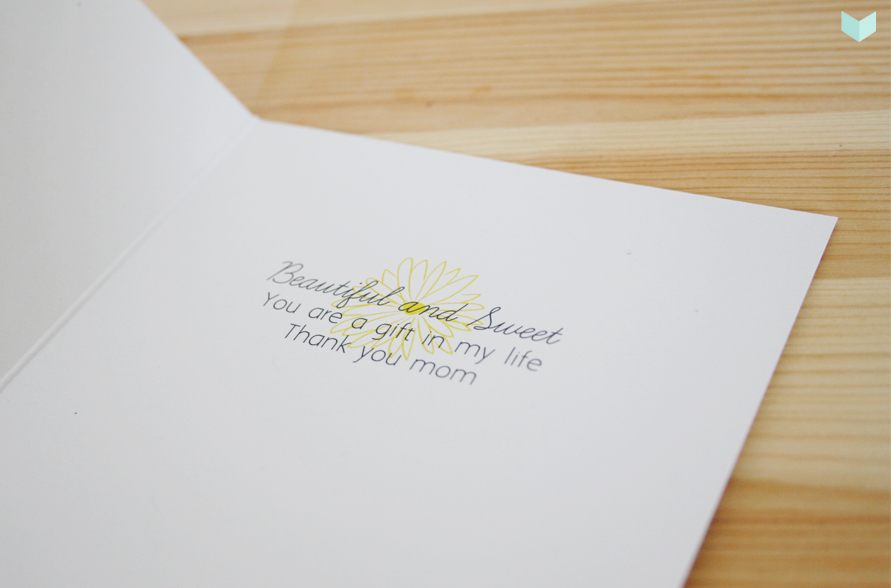 Beautiful and Sweet
You are a gift in my life
Thank you mom